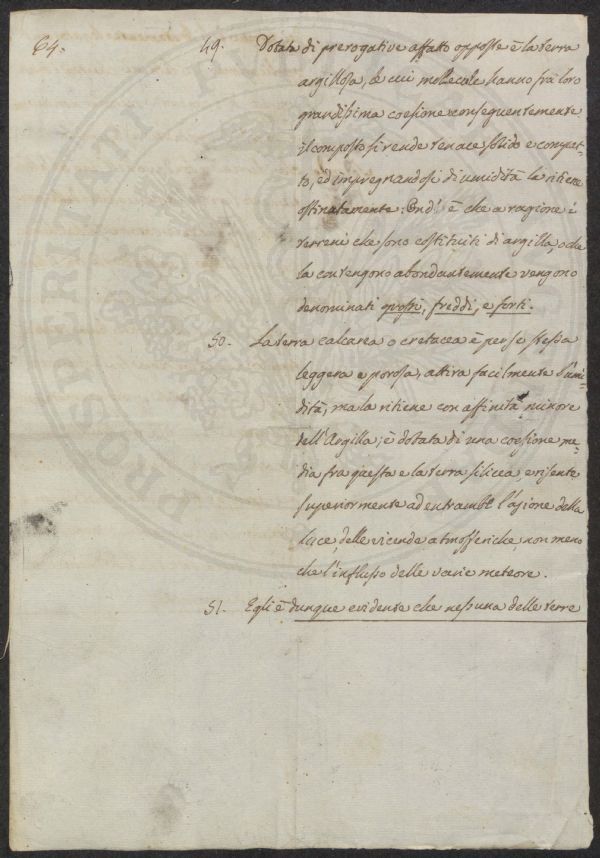 64. 49. Dotata di prerogative affatto opposte è la terra
argillosa, le cui mollecole hanno frà loro
grandissima coesione conseguentemente
il composto si rende tenace solido e compat-
to, ed impregnandosi di umidità la ritiene
ostinatamente: Ond' è che a ragione i
terreni che sono costituiti di argilla, o che
la contengono abondantemente vengono
denominati grossi, freddi, e forti.
50. La terra calcarea o cretacea è per se stessa
leggera e porosa, attira facilmente l'umi-
dità, ma la ritiene con affinità minore
dell'Argilla; è dotata di una coesione me-
dia fra questa e la terra silicea, e risente
superiormente ad entrambe l'azione della
luce, delle vicende atmosferiche, non meno
che l'influsso delle varie meteore.
51. Egli è dunque evidente che nessuna delle terre
PROSPERITATI PVBLICAE